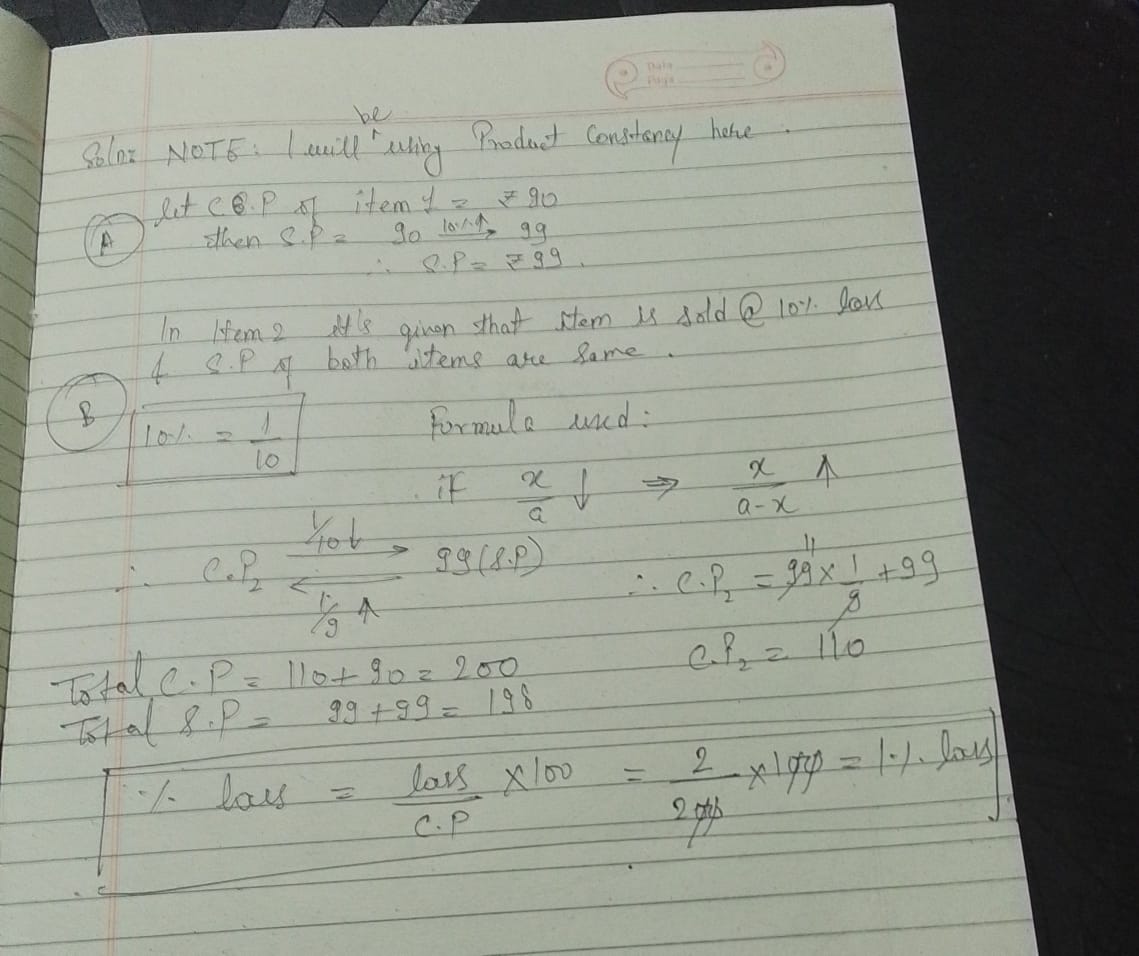 Date
Page
Soln: NOTE: I will be using Product Constancy here.
let C.P of item 1 = ₹90
A
then S.P = 90 10%↑→ 99
∴ S.P = ₹99.
In Item 2 it's given that item is sold @ 10% loss
& S.P of both items are same.
B
10% = 1/10
Formula used:
if x/a ↓ ⇒ x/(a-x) ↑
∴ C.P₂ 1/10↓ → 99 (S.P)
← 1/9 ↑
∴ C.P₂ = 99 × 1/9 + 99
11
C.P₂ = 110
Total C.P = 110 + 90 = 200
Total S.P = 99 + 99 = 198
% loss = loss/C.P × 100 = 2/200 × 100 = 1% loss